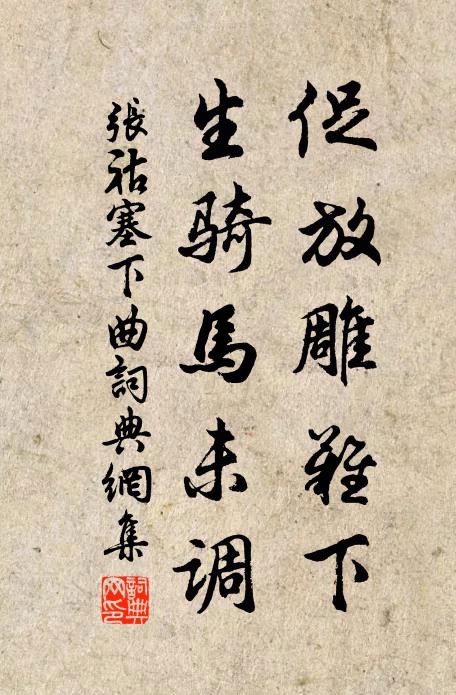 促放雕難下
生騎馬未調
張祜塞下曲詞典網集
詞典網印